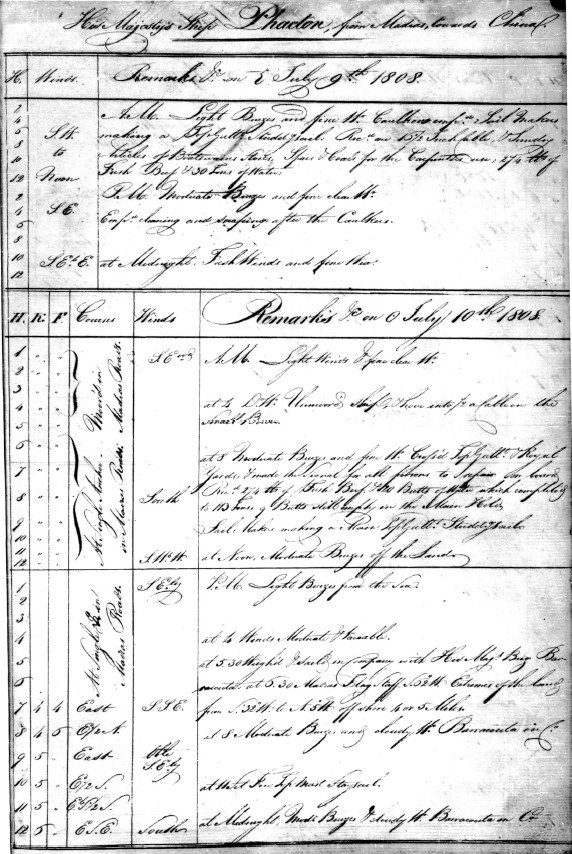 His Majesty's Ship Phaeton, from Madras, towards China.
H. Winds. Remarks &c on ♄ July 9th 1808.
2 A.M. Light Breezes and fine Wr. Caulkers empd. Sail Makers
4 making a Top Gallt. Studdg sail. Recd. on Inch Cable, & Sundry
6 S.W.
8 to Articles of Boatswains Stores, Spars & for the Carpenters use, 274 lbs of
10 Noon Fresh Beef & 30 Tons of Water.
12
2 P.M. Moderate Breezes and fine clear Wr.
4 S.E. Empd. cleaning and scraping after the Caulkers.
6
8
10 S.E.b.E. at Midnight. Fresh Winds and fine Wear.
12
H. K. F. Courses Winds Remarks &c on ☉ July 10th 1808
1 S.Eerd A.M. Light Winds & fine clear Wr.
2
3
4 at 4 D.W. Unmoored Ship, & hove into ½ a Cable on the
5 Small Bower.
6
7 at 8 Moderate Breezes and fine Wr. Crossed Top Gallt. & Royal
Yards, & made the Signal for all persons to repair on board.
8 South Recd. 274 lbs of Fresh Beef & 20 Butts of Water which completed
9 to 113 Tons, 9 Butts still empty in the Main Hold.
10 Sail Makers making a Main Top Gallt. Studdg sails
11
12 S.W.W. at Noon, Moderate Breezes off the Land.
At Single Anchor Moored in
in Madras Roads Madras Roads.
1 S.E.ly P.M. Light Breezes from the Sea.
2
3
4 at 4 Winds Moderate & Variable.
5 at 5.30 Weigh'd & Sail'd in Company with His Majs. Brig Bar-
6 racouta. at 6.30 Madras Flag staff S.52W. Extremes of the Land
7 4 4 East S.S.E. from S.32W. to N.5W. off shore 4 or 5 Miles.
8 4 5 E½N. at 8 Moderate Breezes and cloudy Wr. Barracouta in Co.
9 5 . East S.E.ly
10 5 . E½S. at Set Fore Top Mast Stay sail.
11 5 . E½S.
12 5 . E.S.E. South at Midnight Modt. Breezes & cloudy Wr. Barracouta in Co
At Single Anchor in
Madras Roads.